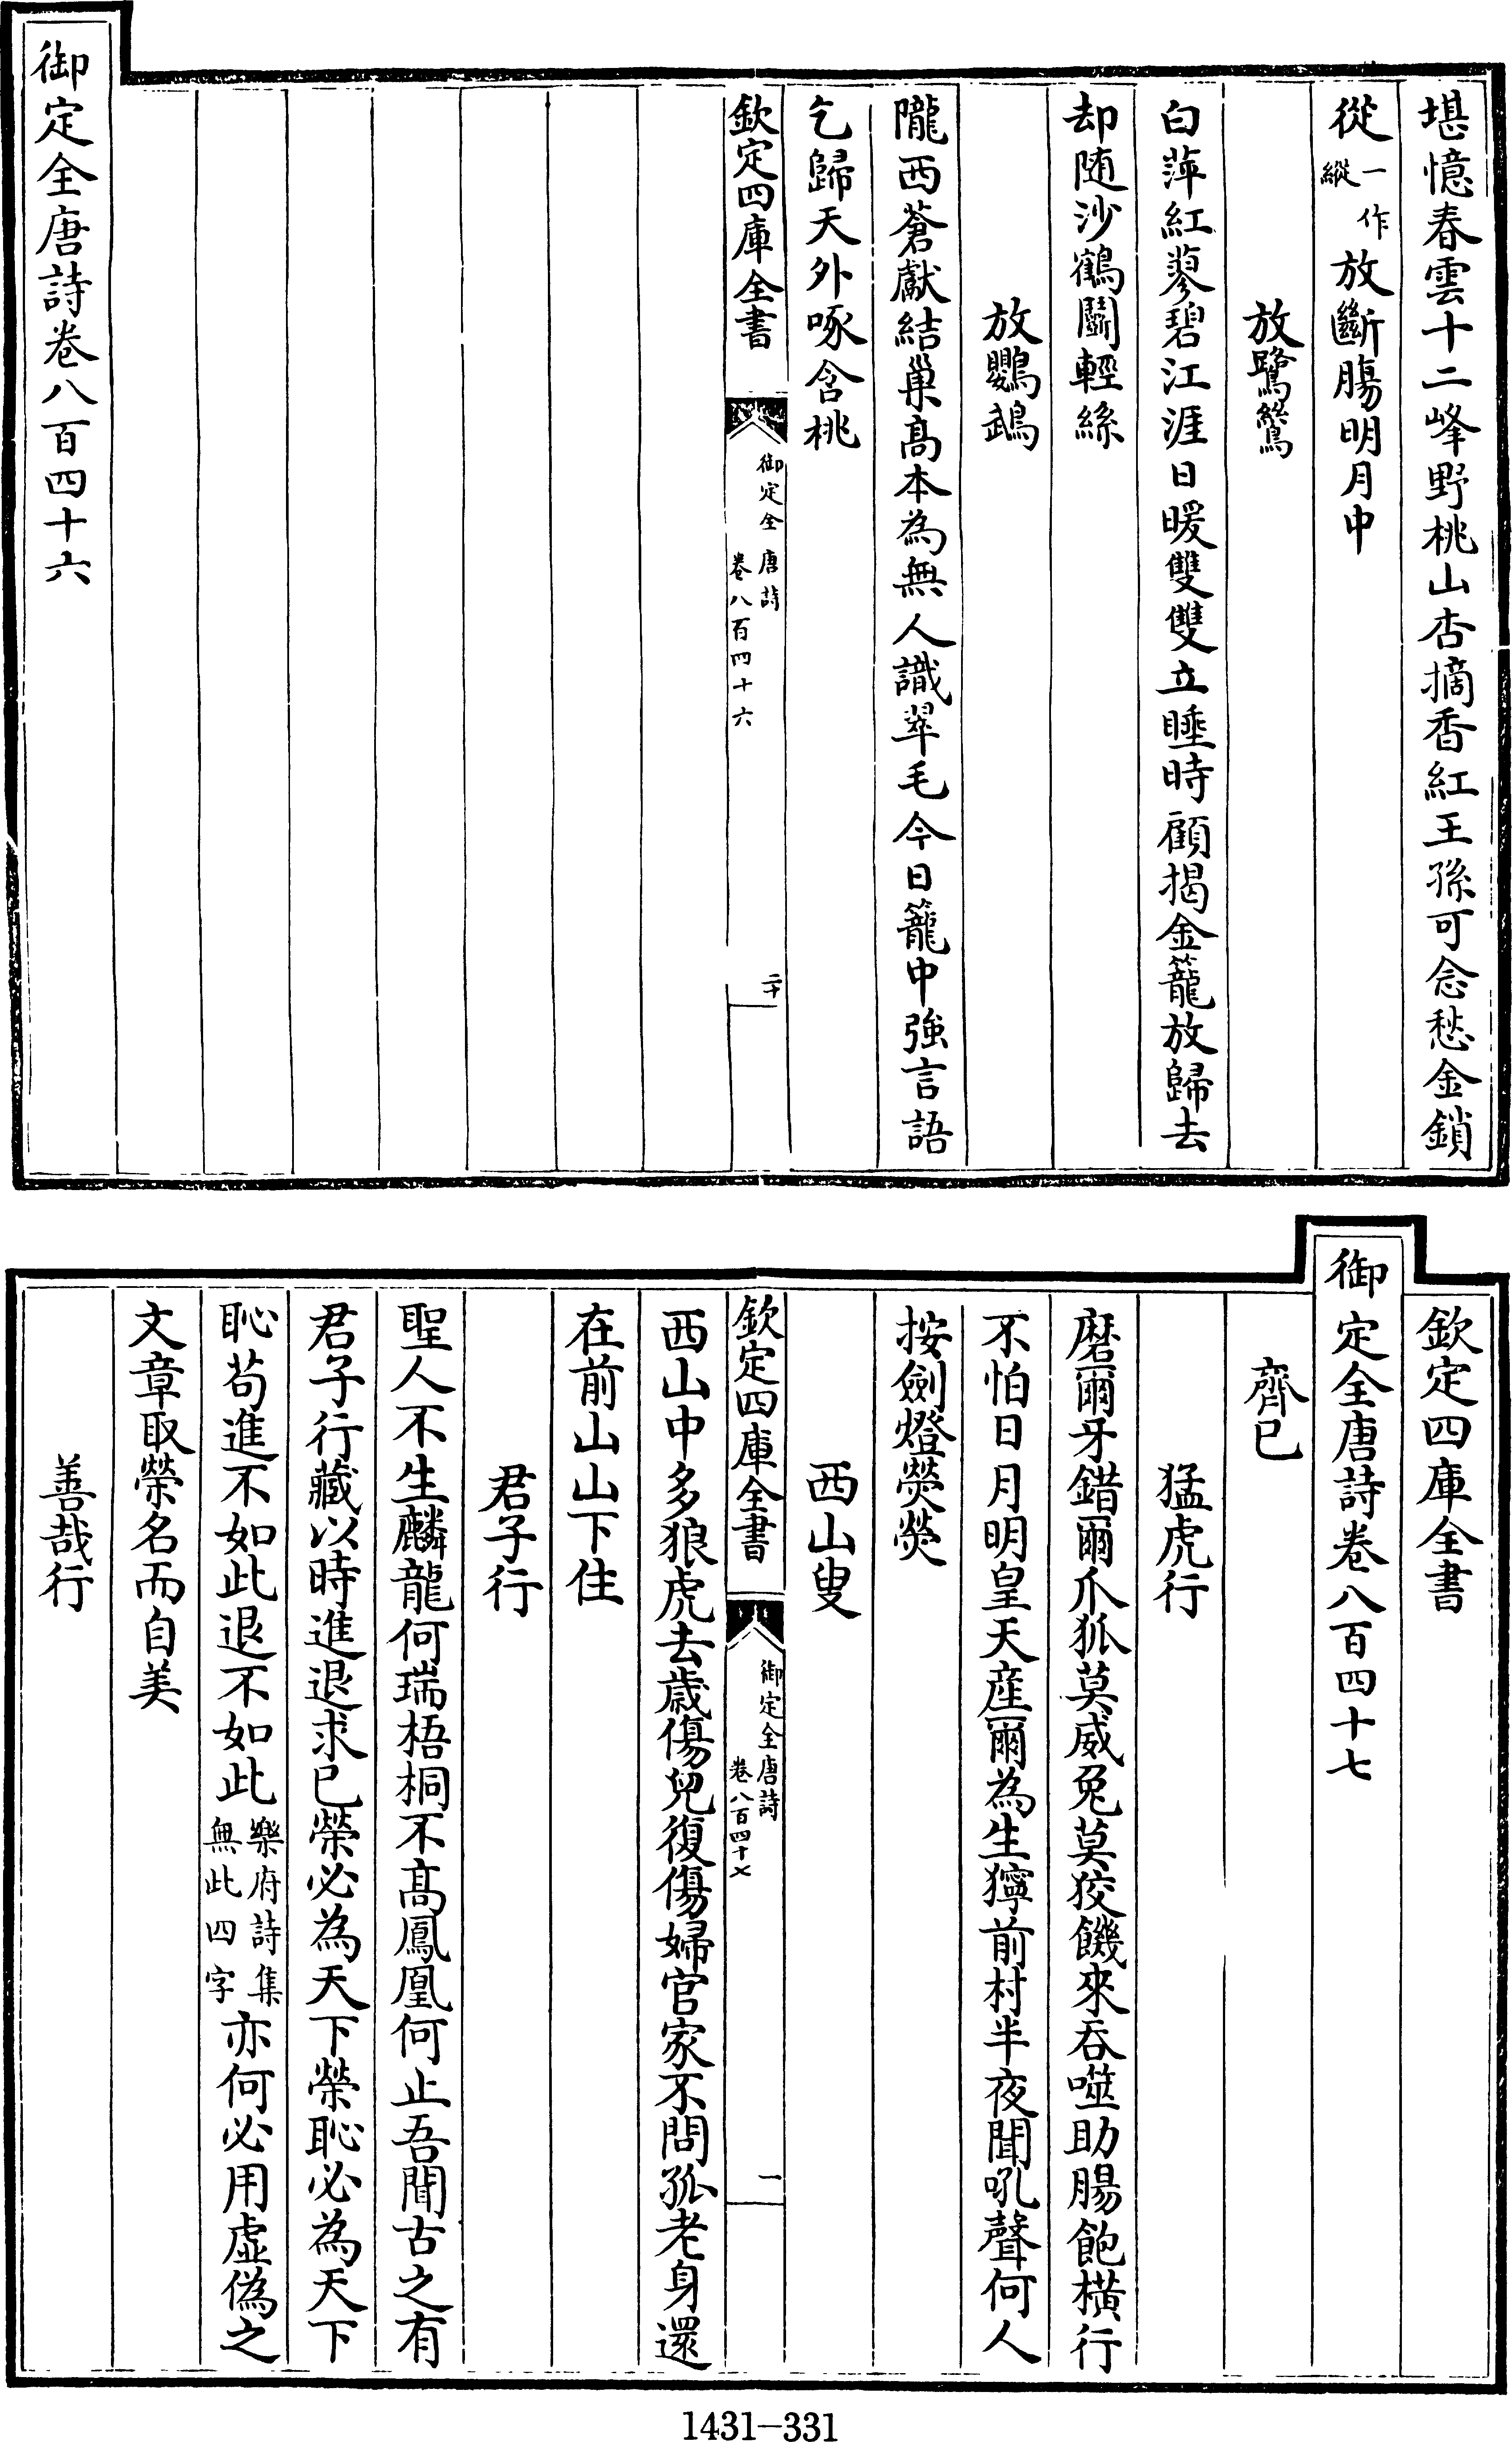 堪憶春雲十二峰野桃山杏摘香紅王孫可念愁金鎖
從一作縱放斷腸明月中
放鷺鷥
白萍紅蓼碧江涯日暖雙雙立睡時願揭金籠放歸去
却随沙鶴鬬輕絲
放鸚鵡
隴西蒼巘結巢髙本為無人識翠毛今日籠中強言語
乞歸天外啄含桃
欽定四庫全書
御定全唐詩
卷八百四十六
二十
御定全唐詩卷八百四十六
欽定四庫全書
御定全唐詩卷八百四十七
齊已
猛虎行
磨爾牙錯爾爪狐莫威兔莫狡饑來吞噬助腸飽橫行
不怕日月明皇天産爾為生獰前村半夜聞吼聲何人
按劍燈熒熒
西山叟
欽定四庫全書
御定全唐詩
卷八百四十七
一
西山中多狼虎去歲傷兒復傷婦官家不問孤老身還
在前山山下住
君子行
聖人不生麟龍何瑞梧桐不髙鳳凰何止吾聞古之有
君子行藏以時進退求已榮必為天下榮恥必為天下
恥苟進不如此退不如此樂府詩集無此四字亦何必用虛偽之
文章取榮名而自美
善哉行
1431-331